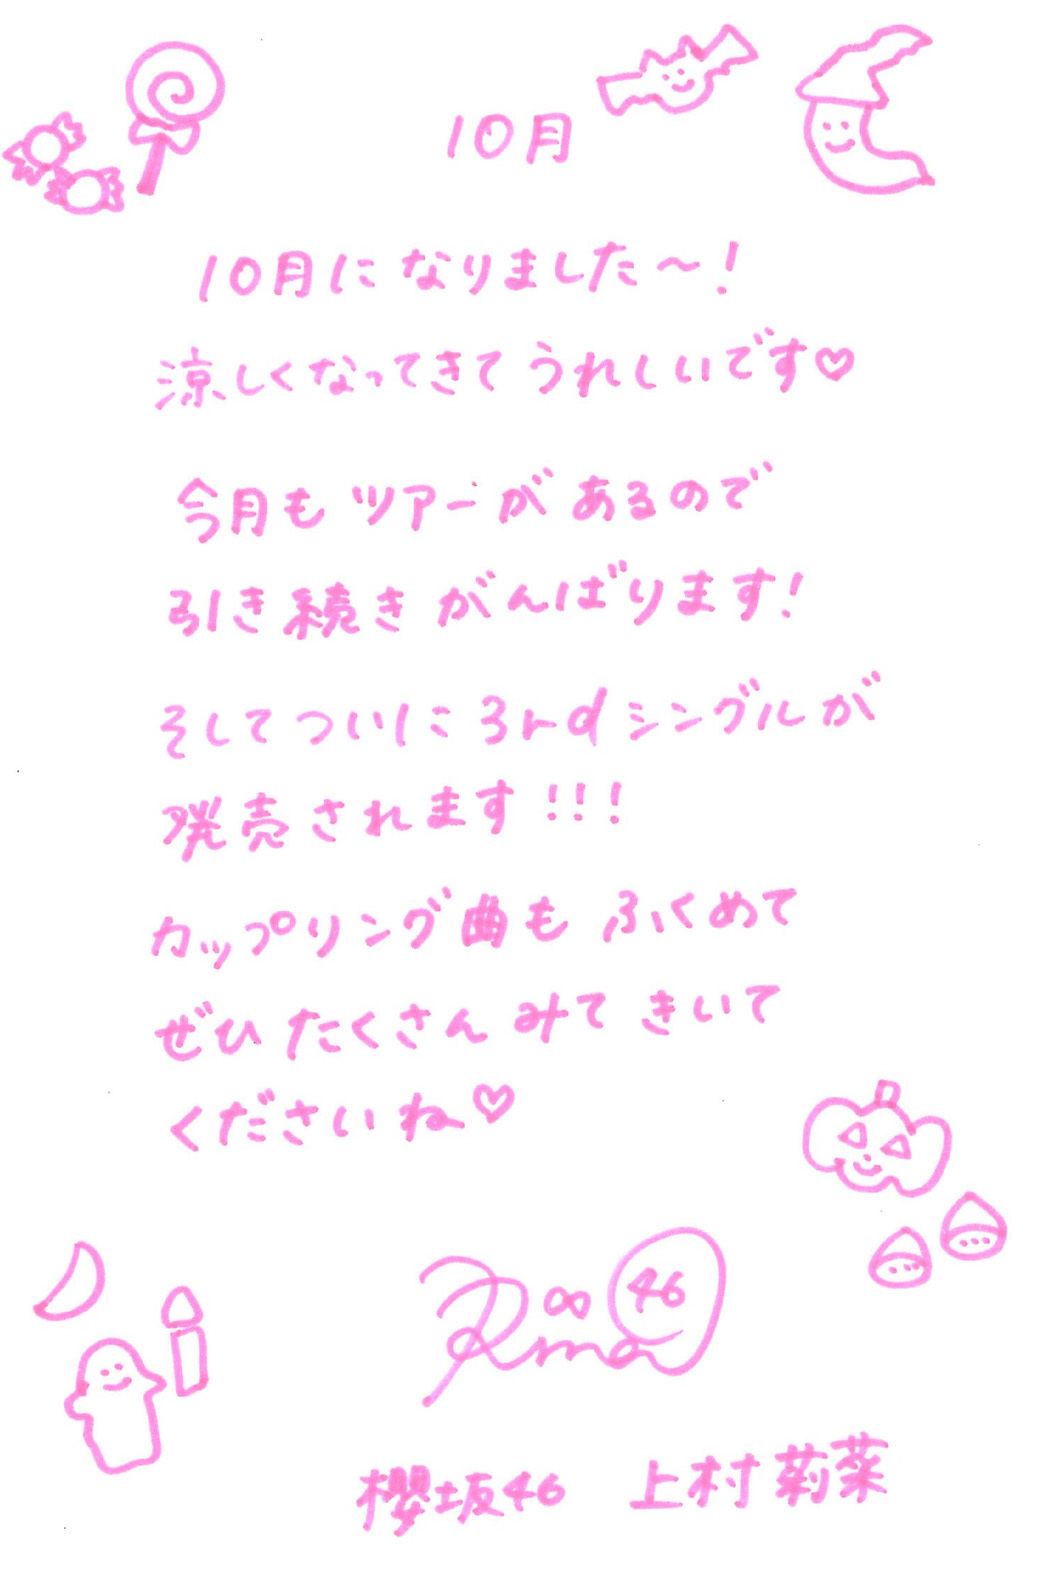 10月
10月になりました〜!
涼しくなってきてうれしいです♡
今月もツアーがあるので
引き続きがんばります!
そしてついに3rdシングルが
発売されます!!!
カップリング曲もふくめて
ぜひたくさんみてきいて
くださいね♡
46
櫻坂46 上村莉菜